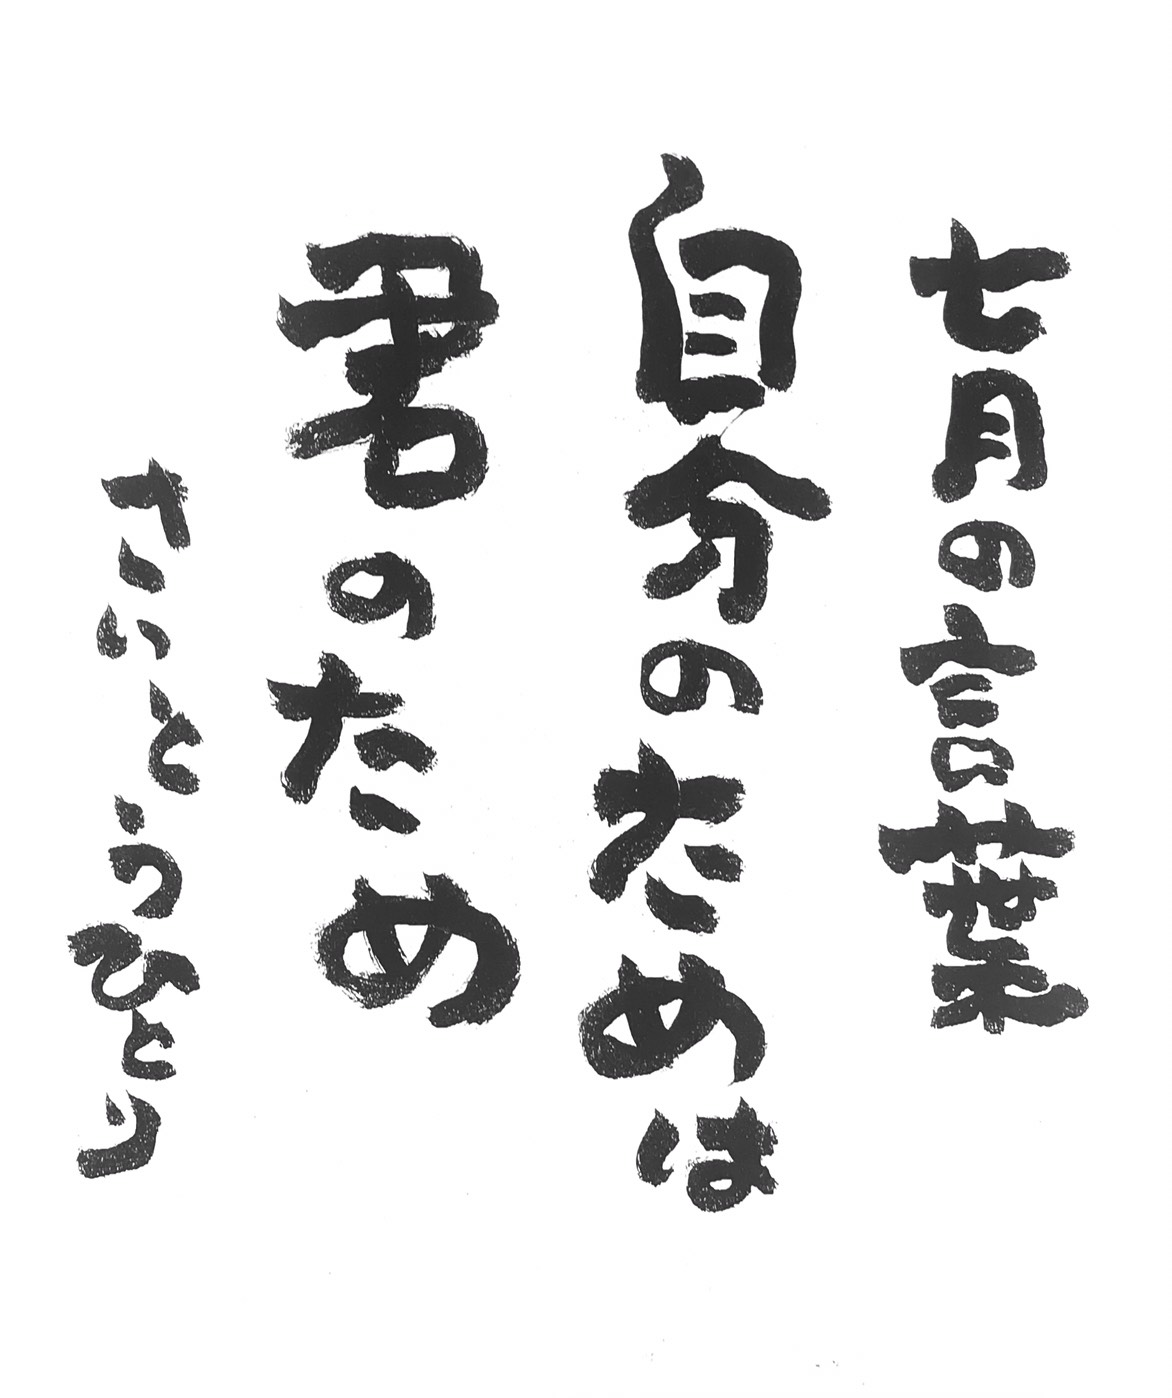 七月の言葉
自分のためは
君のため
さいとうひとり